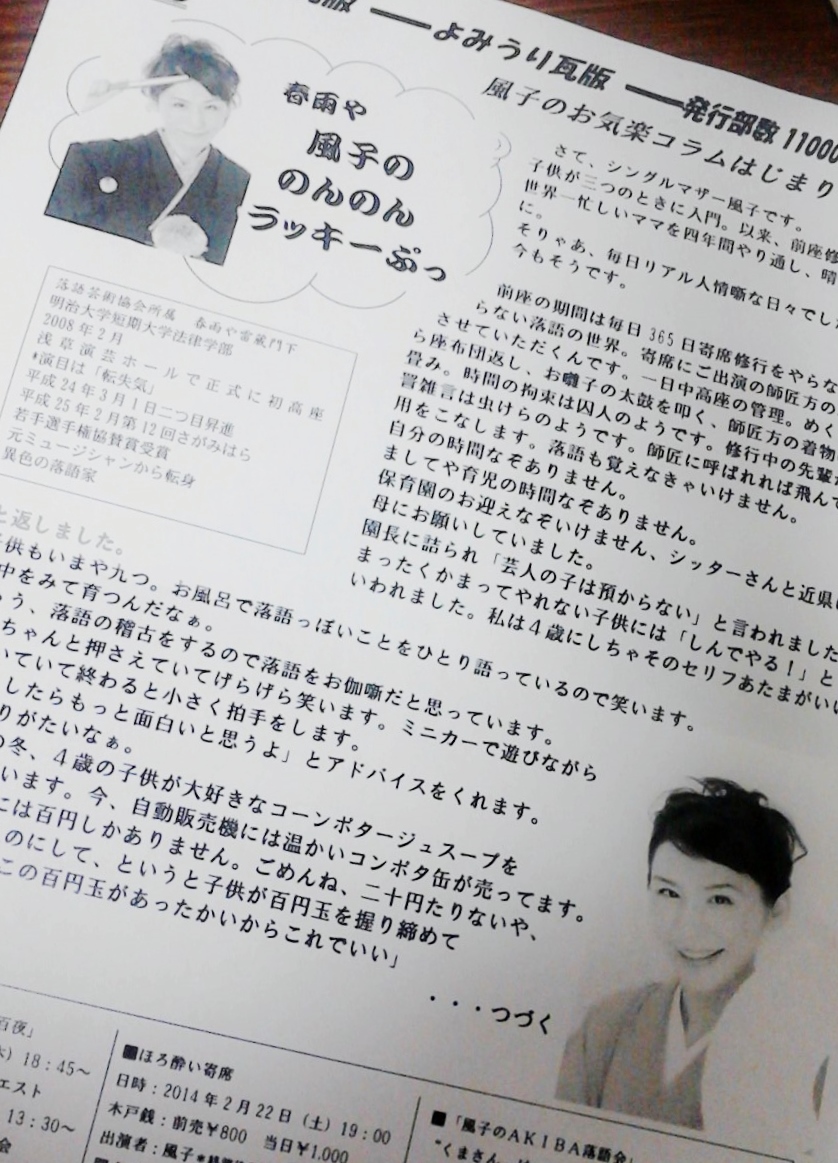 版 ━━ よみうり瓦版 ━━ 発行部数11000
風子のお気楽コラムはじまり
春雨や
風子の
のんのん
ラッキーぷっ
さて、シングルマザー風子です。
子供が三つのときに入門。以来、前座修
世界一忙しいママを四年間やり通し、晴
に。
そりゃあ、毎日リアル人情噺な日々でした
今もそうです。
落語芸術協会所属 春雨や雷蔵門下
明治大学短期大学法律学部
2008年2月
浅草演芸ホールで正式に初高座
*演目は「転失気」
平成24年3月1日二つ目昇進
平成25年2月第12回さがみはら
若手選手権協賛賞受賞
元ミュージシャンから転身
異色の落語家
前座の期間は毎日365日寄席修行をやらな
らない落語の世界。寄席にご出演の師匠方の
させていただくんです。一日中高座の管理。めく
ら座布団返し、お囃子の太鼓を叩く、師匠方の着物
畳み。時間の拘束は囚人のようです。修行中の先輩
詈雑言は虫けらのようです。師匠に呼ばれれば飛んで
用をこなします。落語も覚えなきゃいけません。
自分の時間なぞありません。
ましてや育児の時間なぞありません。
保育園のお迎えなぞいけません、シッターさんと近県
母にお願いしていました。
園長に詰られ「芸人の子は預からない」と言われました
まったくかまってやれない子供には「しんでやる!」と
いわれました。私は4歳にしちゃそのセリフあたまがいい
と返しました。
供もいまや九つ。お風呂で落語っぽいことをひとり語っているので笑います。
中をみて育つんだなぁ。
う、落語の稽古をするので落語をお伽噺だと思っています。
ちゃんと押さえていてげらげら笑います。ミニカーで遊びながら
いていて終わると小さく拍手をします。
したらもっと面白いと思うよ」とアドバイスをくれます。
りがたいなぁ。
の冬、4歳の子供が大好きなコーンポタージュスープを
います。今、自動販売機には温かいコンポタ缶が売ってます。
には百円しかありません。ごめんね、二十円たりないや、
のにして、というと子供が百円玉を握り締めて
この百円玉があったかいからこれでいい」
・・・つづく
百夜」
木）18：45～
エスト
13：30～
会
■ほろ酔い寄席
日時：2014年2月22日（土）19：00
木戸銭：前売￥800 当日￥1,000
出演者：風子*
■「風子のAKIBA落語会」
"くまさん